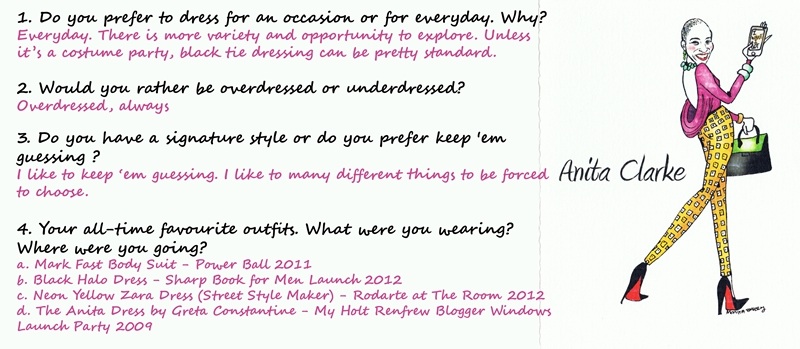 1. Do you prefer to dress for an occasion or for everyday. Why?
Everyday. There is more variety and opportunity to explore. Unless
it's a costume party, black tie dressing can be pretty standard.
2. Would you rather be overdressed or underdressed?
Overdressed, always
3. Do you have a signature style or do you prefer keep 'em
guessing ?
I like to keep 'em guessing. I like to many different things to be forced
to choose.
4. Your all-time favourite outfits. What were you wearing?
Where were you going?
a. Mark Fast Body Suit - Power Ball 2011
b. Black Halo Dress - Sharp Book for Men Launch 2012
c. Neon Yellow Zara Dress (Street Style Maker) - Rodarte at The Room 2012
d. The Anita Dress by Greta Constantine - My Holt Renfrew Blogger Windows
Launch Party 2009
Anita Clarke